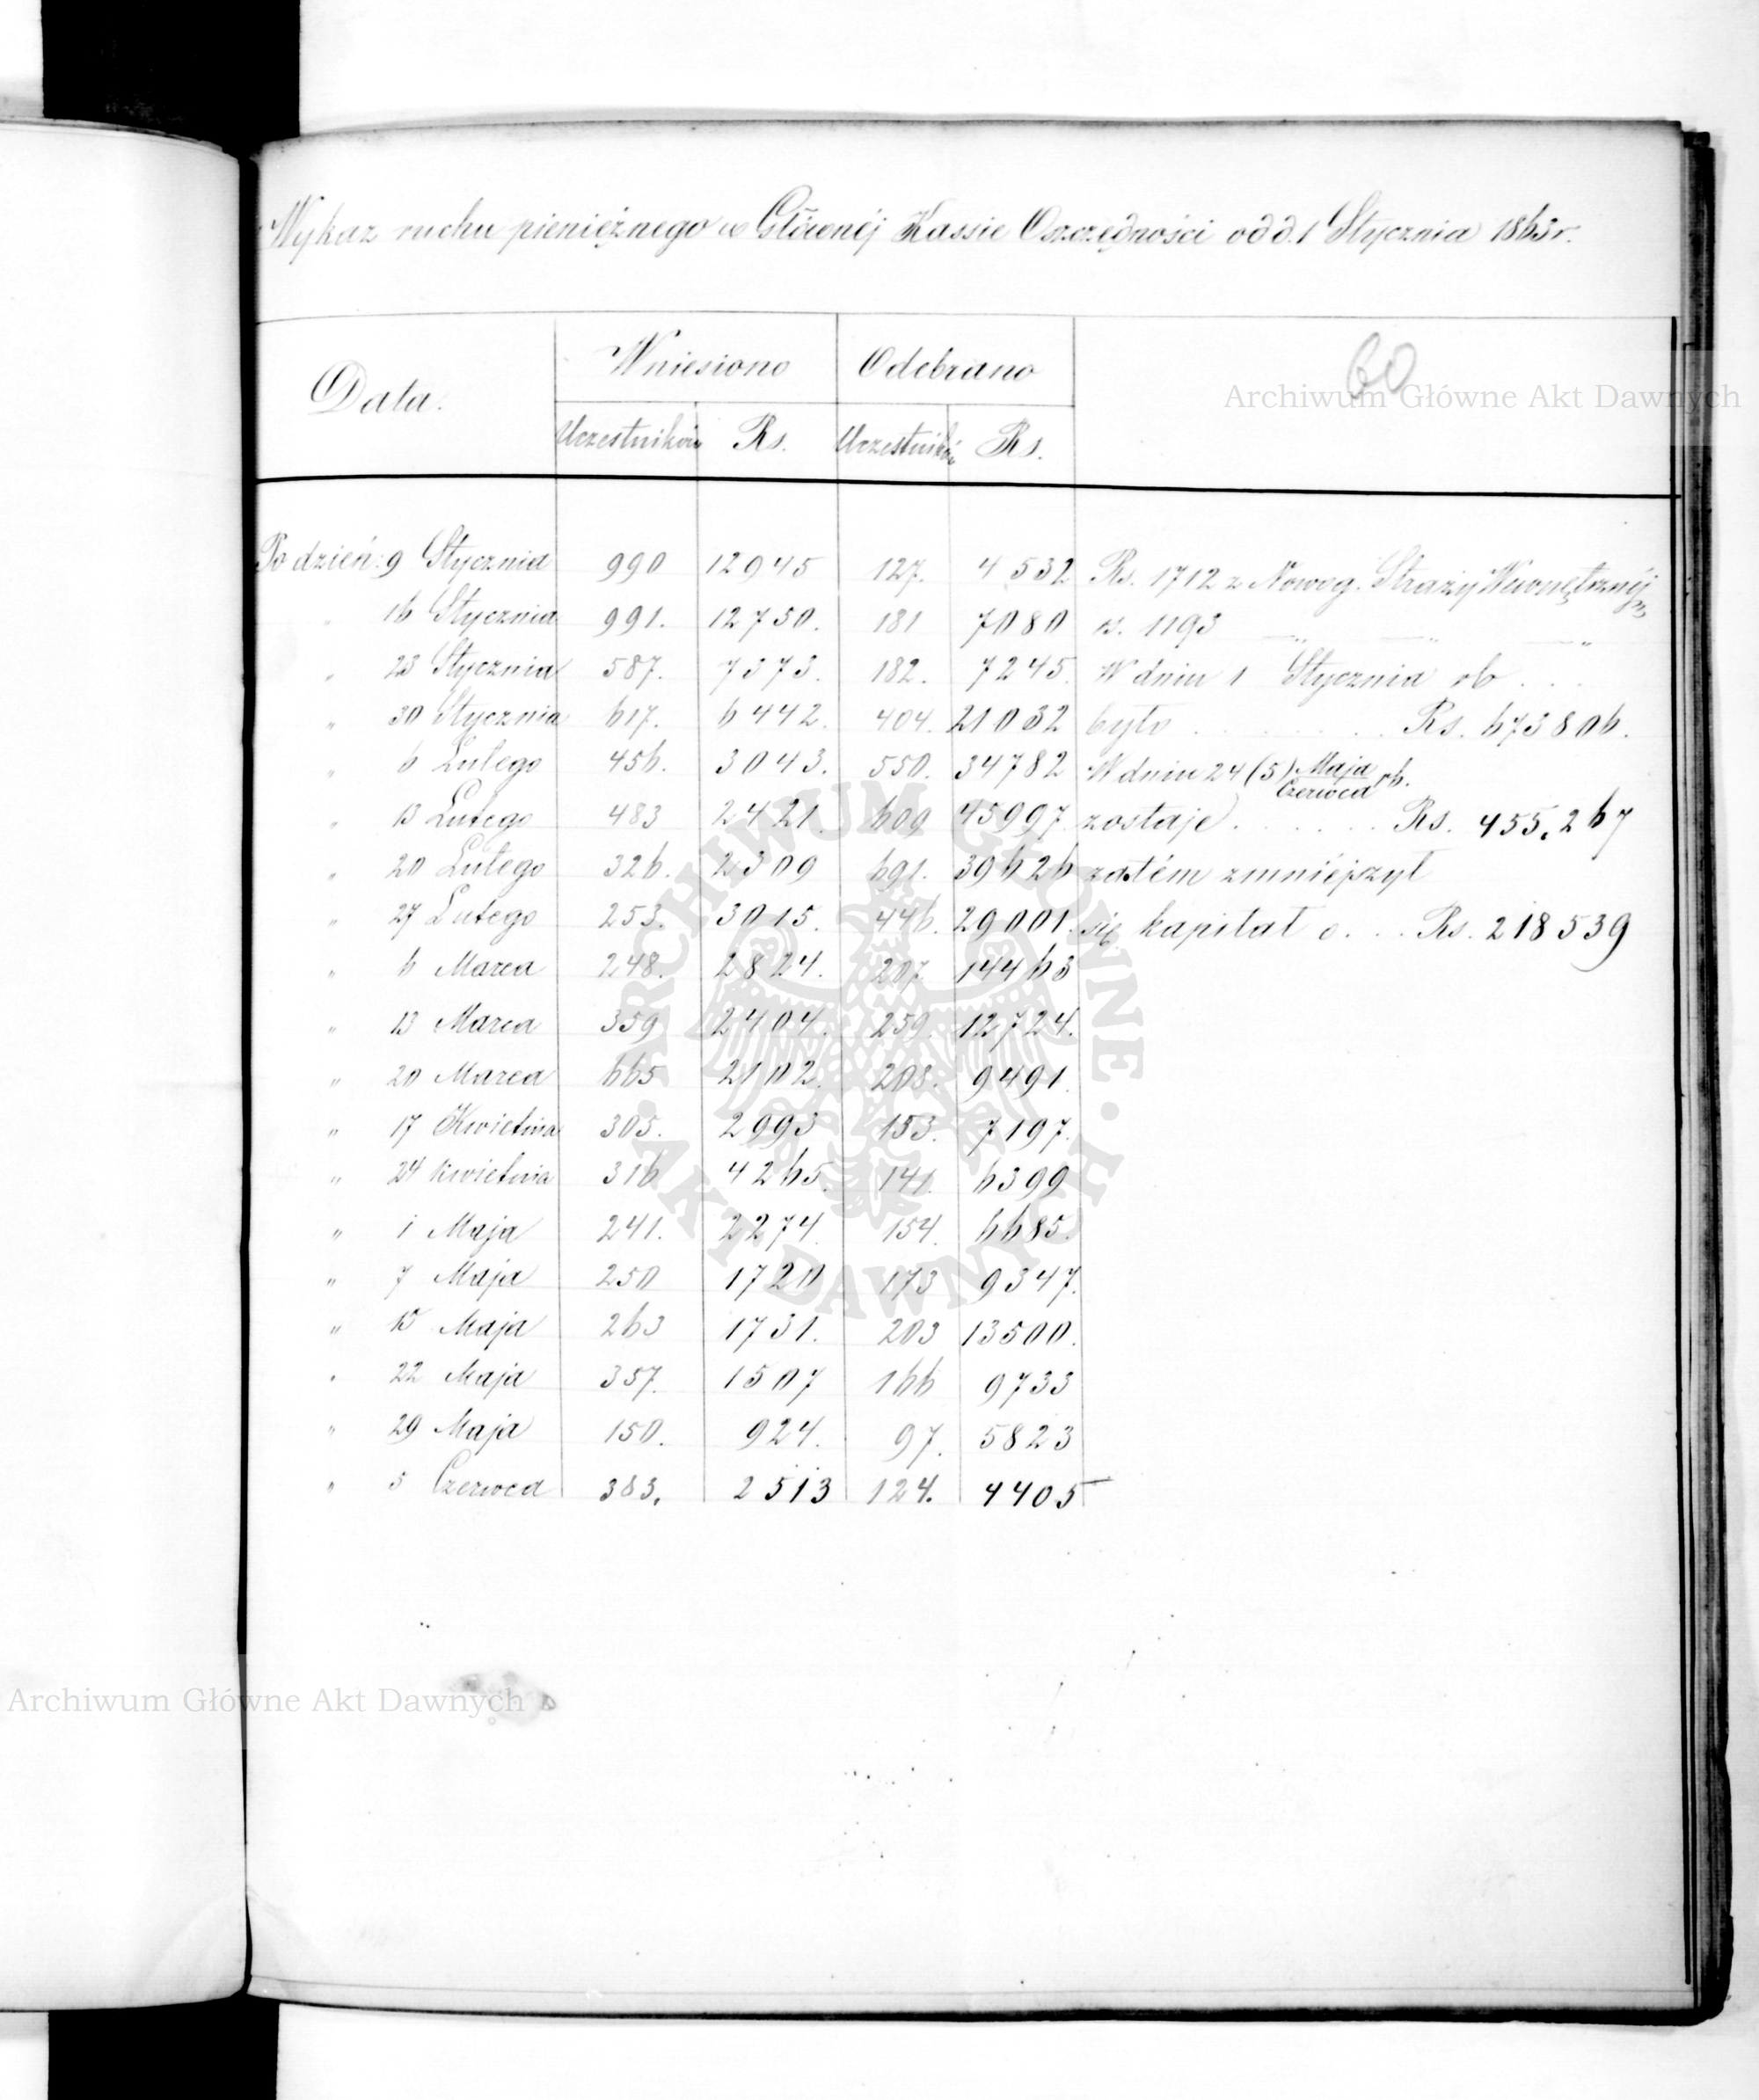 Wykaz ruchu pieniężnego w Głównéj Kassie Oszczędności od d. 1 Stycznia 1863 r.
60
Archiwum Główne Akt Dawnych
Data. Wniesiono Odebrano
Uczestników Rs. Uczestników Rs.
Po dzień: 9 Stycznia 990 12945 127. 4532 Rs. 1712 z Nowog. Straży Wewnętrznéj
" 16 Stycznia 991. 12750. 181 7080 rs. 1193 — " — " — "
" 23 Stycznia 587. 7373. 182. 7245. W dniu 1 Stycznia rb . . .
" 30 Stycznia 617. 6442. 404. 21032 było . . . . . . . . Rs. 673806.
" 6 Lutego 456. 3043. 550. 34782 W dniu 24 (5) Maja/Czerwca rb.
" 13 Lutego 483 2421. 609 45997 zostaje . . . . . . Rs. 455.267
" 20 Lutego 326. 2309 691. 39626 zatém zmniéjszył
" 27 Lutego 253. 3015. 446. 29001. się kapitał o . . . Rs. 218539
" 6 Marca 248. 2824. 207 14463
" 13 Marca 359 2404. 259. 12724.
" 20 Marca 665 2102. 208. 9491.
" 17 Kwietnia 305. 2993 153. 7197.
" 24 Kwietnia 316 4265. 141. 6399
" 1 Maja 241. 2274. 154. 6685.
" 7 Maja 250 1720 173 9347.
" 15 Maja 263 1731. 203 13500.
" 22 Maja 357. 1507 166 9733
" 29 Maja 150. 924. 97. 5823
" 5 Czerwca 383. 2513 124. 4405
ARCHIWUM GŁÓWNE · AKT DAWNYCH ·
Archiwum Główne Akt Dawnych